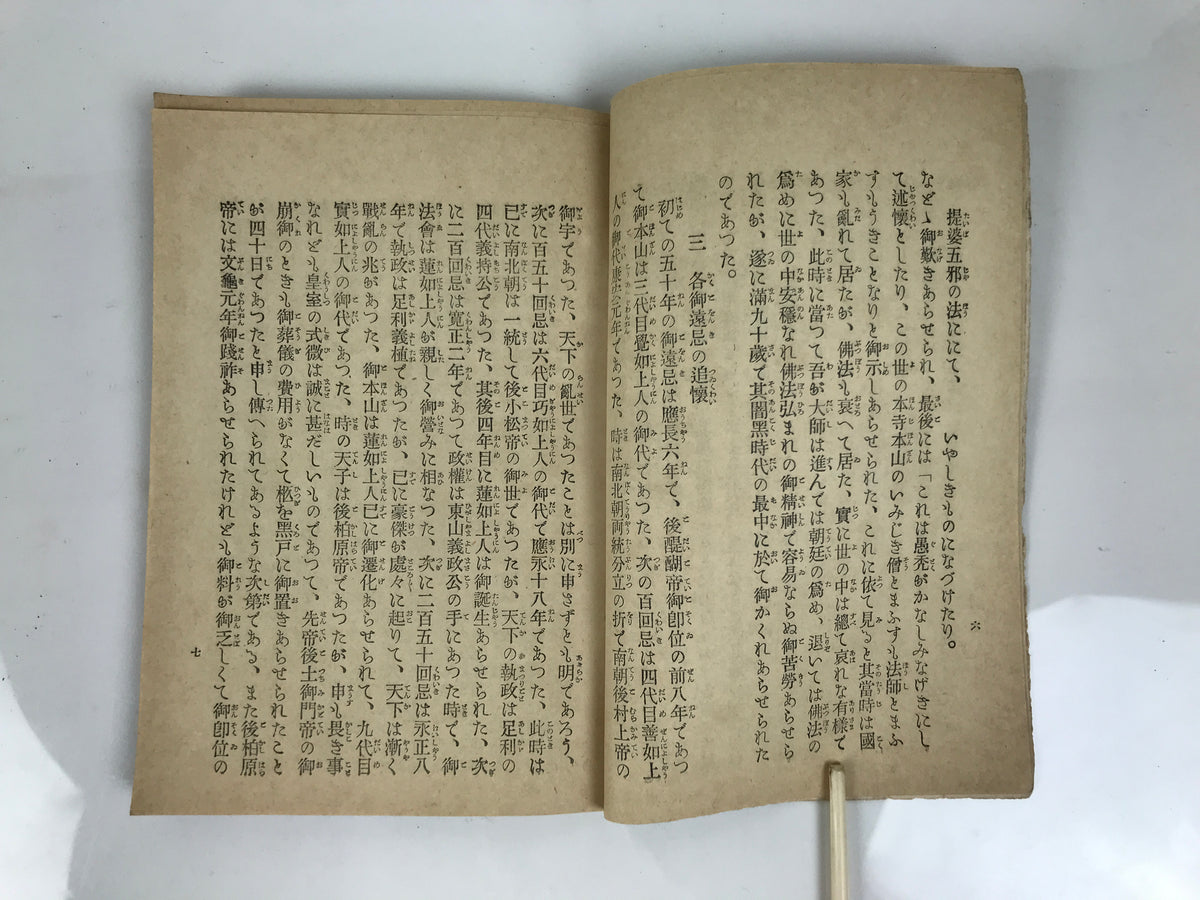 六
提婆五邪の法ににて、　いやしきものになづけたり。
などゝ御歎きあらせられ、最後には「これは愚禿がかなしみなげきにし
て述懷としたり、この世の本寺本山のいみじき僧とまふすも法師とまふ
すもうきことなりと御示しあらせられた、これに依て見ると其當時は國
家も亂れて居たが、佛法も衰へて居た、實に世の中は纔て哀れな有樣で
あつた、此時に當つて吾が大師は進んでは朝廷の爲め、退いては佛法の
爲めに世の中安穩なれ佛法弘まれの御精神で容易ならぬ御苦勞あらせら
れたが、遂に滿九十歲で其闇黑時代の最中に於て御かくれあらせられた
のであつた。
三　各御遠忌の追懷
初ての五十年の御遠忌は應長六年で、後醍醐帝御卽位の前八年であつ
て御本山は三代目覺如上人の御代であつた、次の百回忌は四代目善如上
人の御代康安元年であつた、時は南北朝両統分立の折で南朝後村上帝の
御宇であつた、天下の亂世であつたことは別に申さずとも明であろう、
次に百五十回忌は六代目巧如上人の御代で應永十八年であつた、此時は
已に南北朝は一統して後小松帝の御世であつたが、天下の執政は足利の
四代義持公であつた、其後四年目に蓮如上人は御誕生あらせられた、次
に二百回忌は寬正二年であつて政權は東山義政公の手にあつた時で、御
法會は蓮如上人が親しく御營みに相なつた、次に二百五十回忌は永正八
年で執政は足利義植であつたが、已に豪傑が處々に起りて、天下は漸く
戰亂の兆があつた、御本山は蓮如上人已に御遷化あらせられて、九代目
實如上人の御代であつた、時の天子は後柏原帝であつたが、申も畏き事
なれども皇室の式微は誠に甚だしいものであつて、先帝後土御門帝の御
崩御のときも御葬儀の費用がなくて柩を黑戸に御置きあらせられたこと
が四十日であつたと申し傳へられてあるような次第である、また後柏原
帝には文龜元年御踐祚あらせられたけれども御料が御乏しくて御卽位の
七